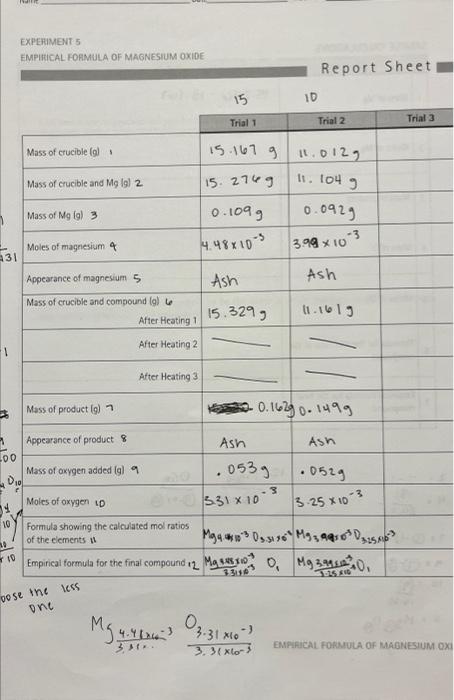 EXPERIMENT 5
EMPIRICAL FORMULA OF MAGNESIUM OXIDE
Report Sheet
15 10
Trial 1 Trial 2 Trial 3
Mass of crucible (g) 1 15.167 g 11.012g
Mass of crucible and Mg (g) 2 15.276g 11.104 g
Mass of Mg (g) 3 0.109g 0.092g
Moles of magnesium 4 4.48x10⁻³ 3.99 x 10⁻³
Appearance of magnesium 5 Ash Ash
Mass of crucible and compound (g) 6
After Heating 1 15.329g 11.161g
After Heating 2
After Heating 3
Mass of product (g) 7 0.162g 0.149g
Appearance of product 8 Ash Ash
Mass of oxygen added (g) 9 .053g .052g
Moles of oxygen 10 3.31 x 10⁻³ 3.25 x10⁻³
Formula showing the calculated mol ratios
of the elements 11
Empirical formula for the final compound 12
the less
one
Mg 4.48x10⁻³ O 3.31 x10⁻³
3.31x10⁻³
EMPIRICAL FORMULA OF MAGNESIUM OXI